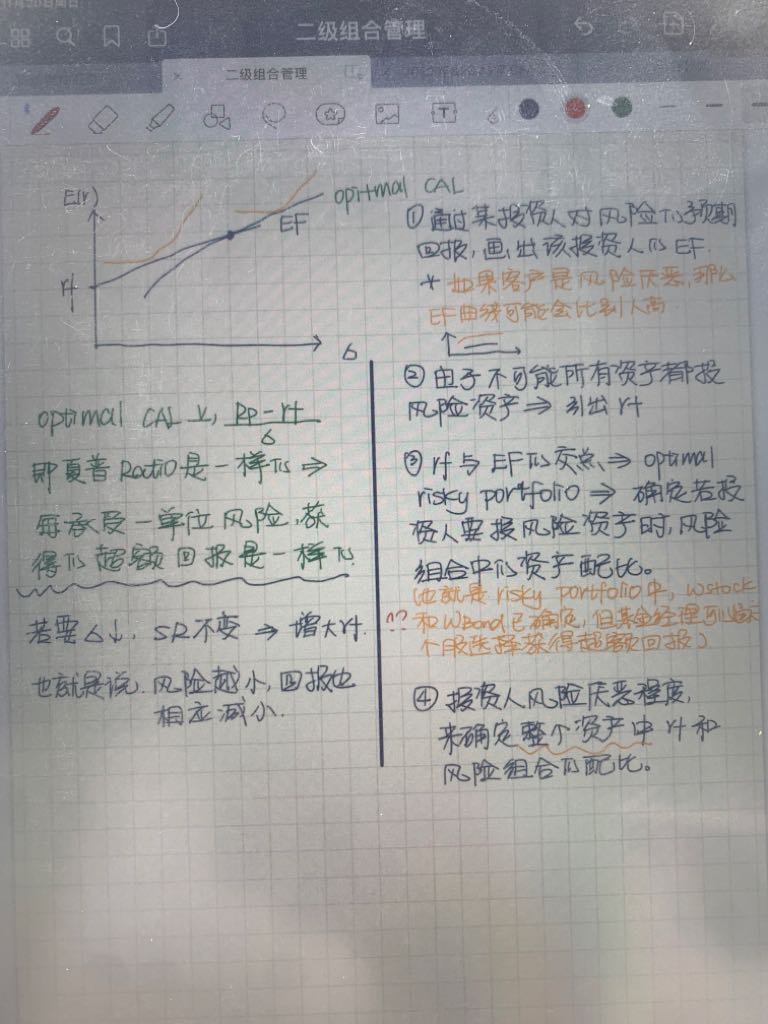 二级组合管理
二级组合管理
E(r)
optimal CAL
EF
rf
σ
optimal CAL 上, Rp-rf
σ
即夏普Ratio是一样的 ⇒
每承受一单位风险,获
得的超额回报是一样的
若要σ↓, SR不变 ⇒ 增大rf.
也就是说.风险越小,回报也
相应减小.
① 通过某投资人对风险的预期
回报,画出该投资人的EF.
* 如果客户是风险厌恶,那么
EF曲线可能会比别人高
② 由于不可能所有资产都投
风险资产 ⇒ 引出rf
③ rf与EF的交点 ⇒ optimal
risky portfolio ⇒ 确定若投
资人要投风险资产时,风险
组合中的资产配比。
(也就是risky portfolio中, Wstock
?? 和Wbond已确定,但基金经理可以
个股选择获得超额回报)
④ 投资人风险厌恶程度,
来确定整个资产中rf和
风险组合的配比。